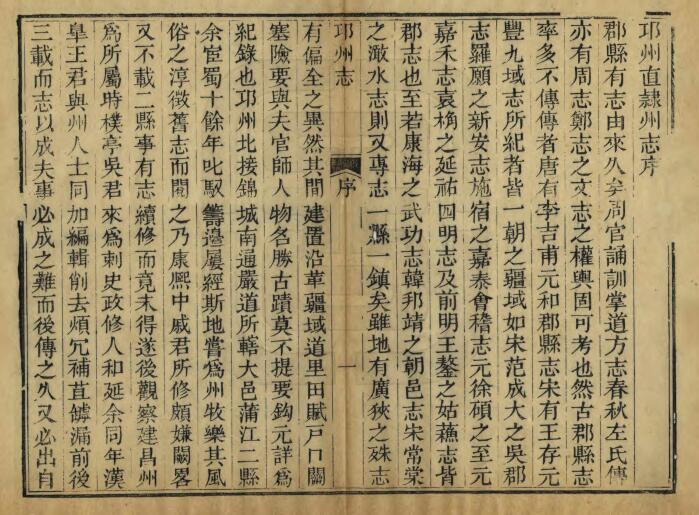 邛州直隸州志序
郡縣有志由來久矣周官誦訓掌道方志春秋左氏傳
亦有周志鄭志之文志之權輿固可考也然古郡縣志
率多不傳傳者唐有李吉甫元和郡縣志宋有王存元
豐九域志所紀者皆一朝之疆域如宋范成大之吳郡
志羅願之新安志施宿之嘉泰會稽志元徐碩之至元
嘉禾志袁桷之延祐四明志及前明王鏊之姑蘓志皆
郡志也至若康海之武功志韓邦靖之朝邑志宋常棠
之澉水志則又專志一縣一鎮矣雖地有廣狹之殊志
邛州志
序
一
有偏全之異然其間建置沿革疆域道里田賦戸口關
塞險要與夫官師人物名勝古蹟莫不提要鈎元詳爲
紀錄也邛州北接錦城南通嚴道所轄大邑蒲江二縣
余宦蜀十餘年叱馭籌邊屢經斯地嘗爲州牧樂其風
俗之淳徵舊志而閱之乃康熙中戚君所修頗嫌闕畧
又不載二縣事有志續修而竟未得遂後觀察建昌州
爲所屬時樸亭吳君來爲刺史政修人和延余同年漢
皐王君與州人士同加編輯削去煩冗補苴罅漏前後
三載而志以成夫事必成之難而後傳之久又必出自